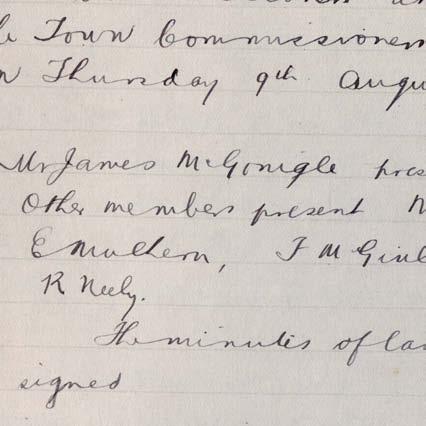 Town Commissioners
Thursday 9th Augu
Mr James McGonigle pres
Other members present M
E Mulhern, J McGinl
R Neely.
The minutes of las
signed